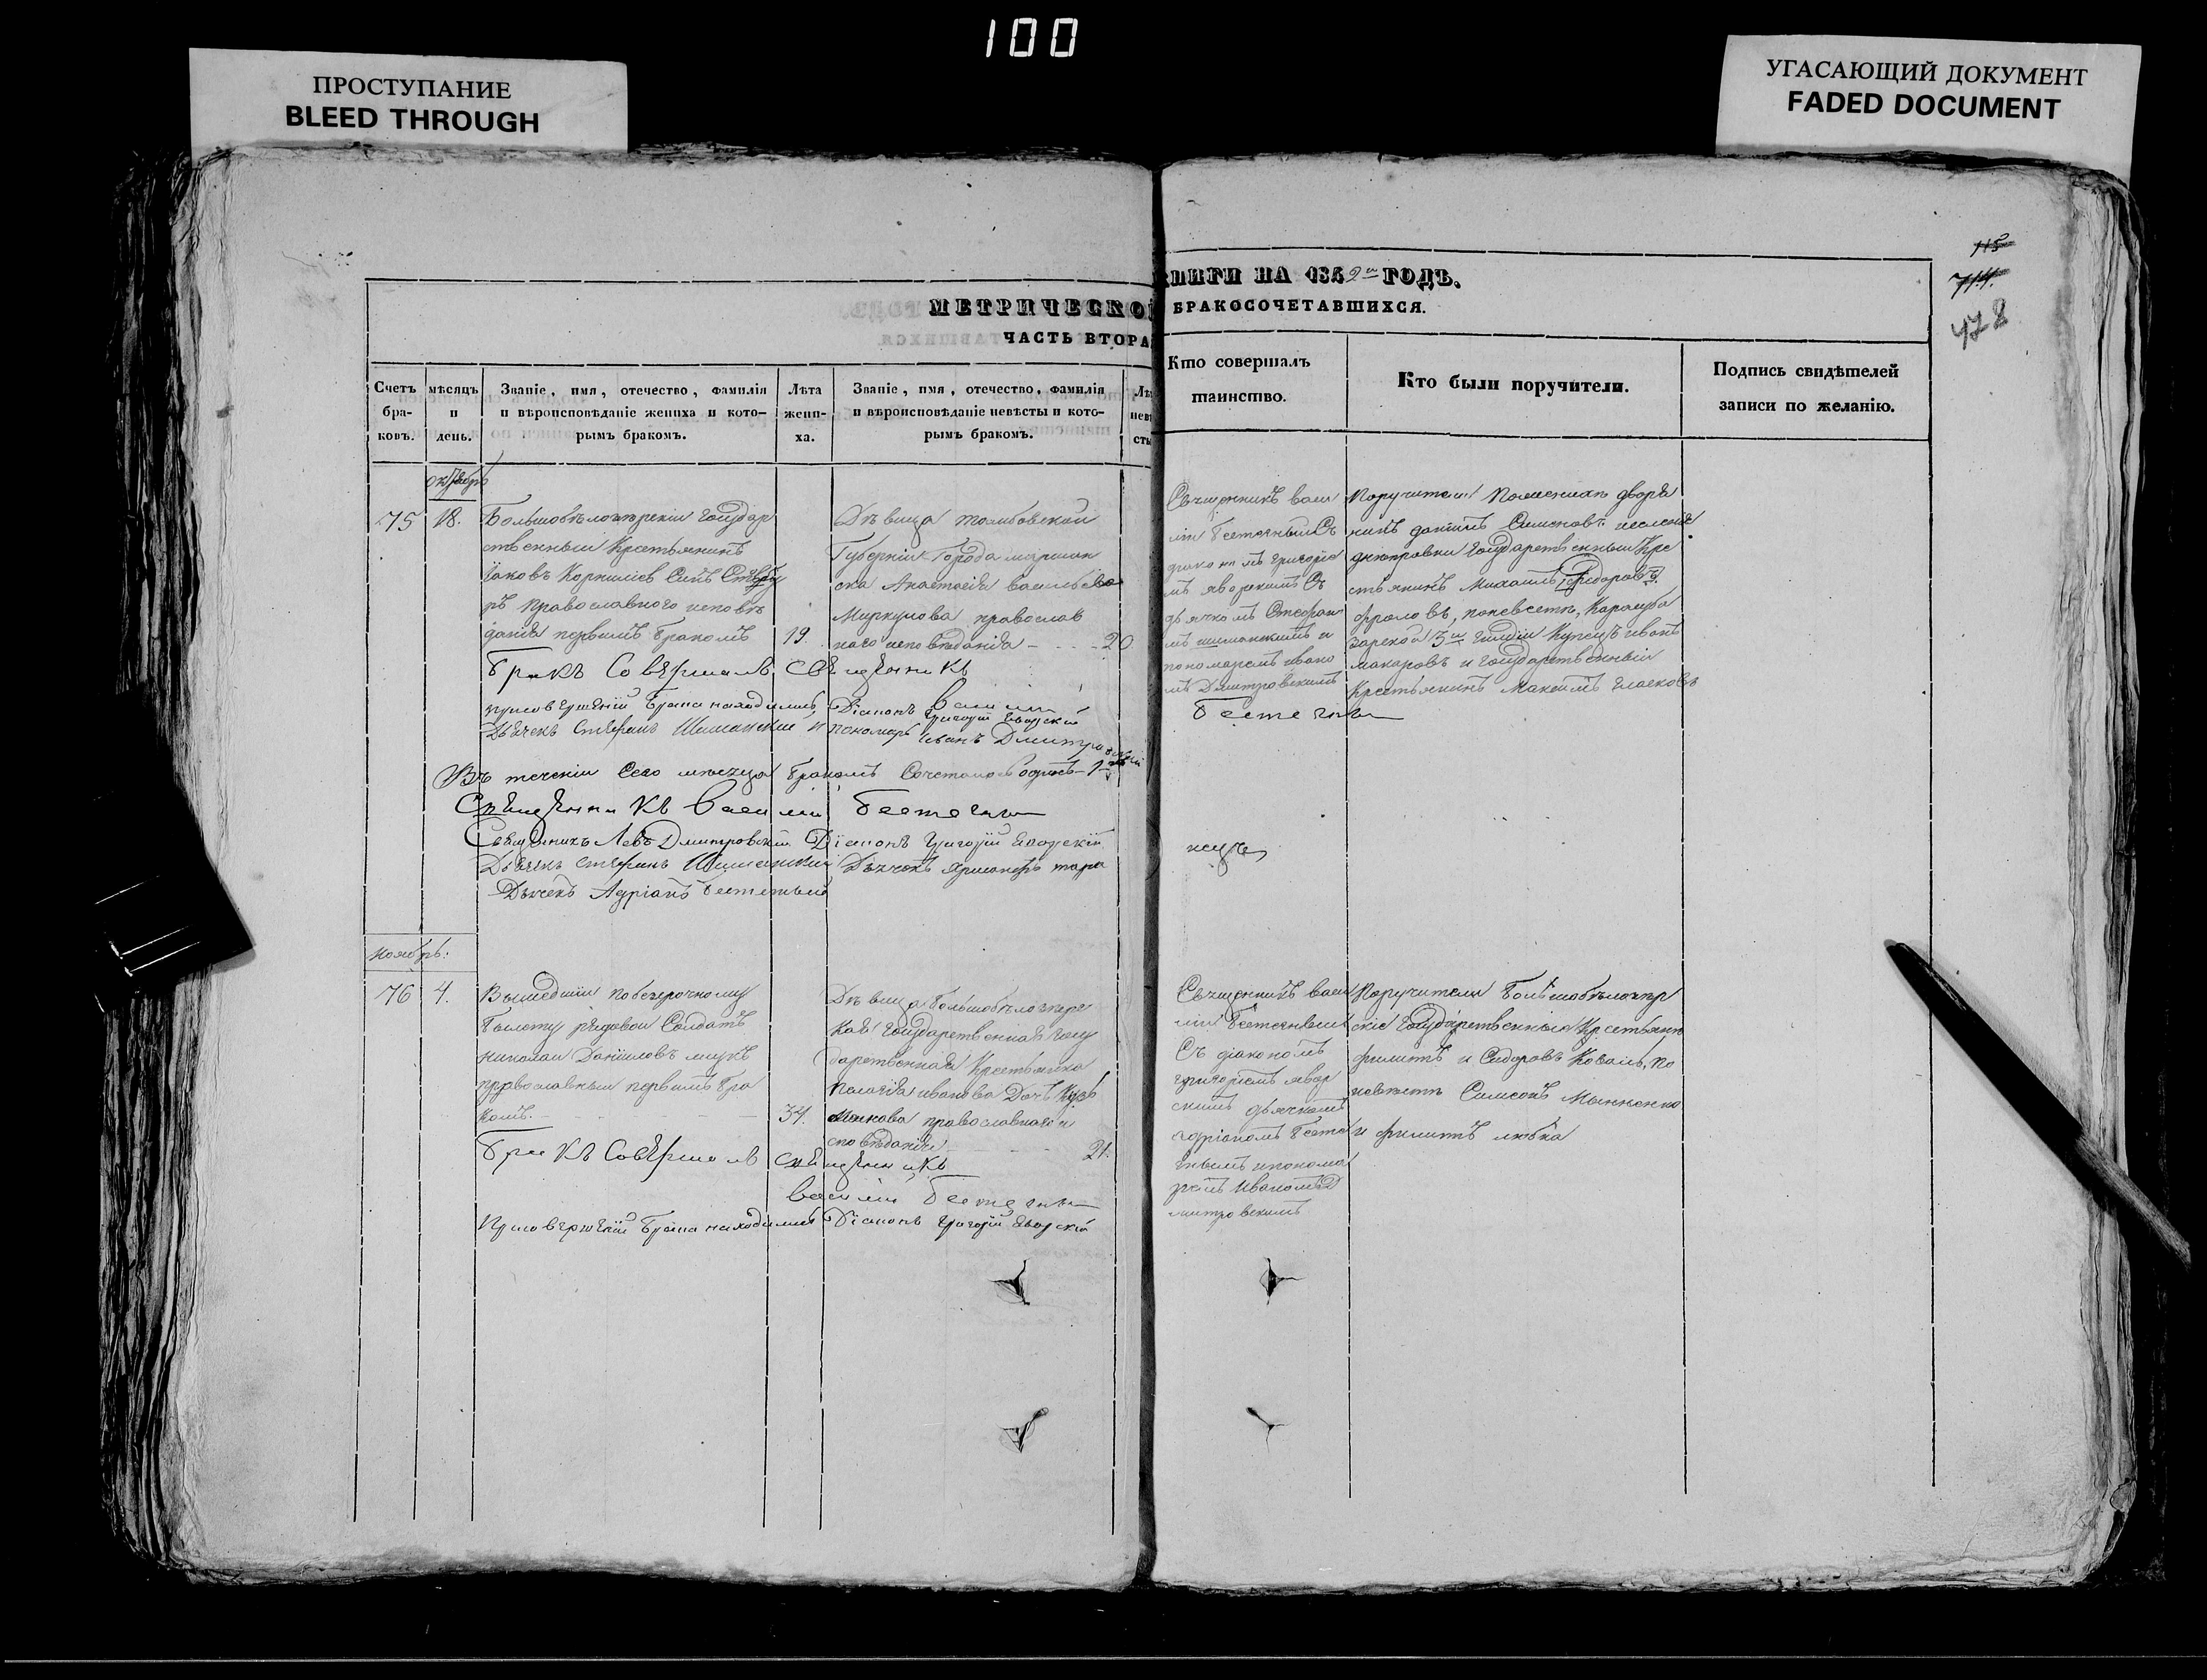 100
ПРОСТУПАНИЕ
BLEED THROUGH
УГАСАЮЩИЙ ДОКУМЕНТ
FADED DOCUMENT
115
714.
478
МЕТРИЧЕСКОЙ
КНИГИ НА 1842й ГОДЪ.
ЧАСТЬ ВТОРА
БРАКОСОЧЕТАВШИХСЯ.
Счетъ бра-ковъ.
мѣсяцъ и день.
Званіе, имя, отечество, фамилія
и вѣроисповѣданіе жениха и кото-
рымъ бракомъ.
Лѣта жени-ха.
Званіе, имя, отечество, фамилія
и вѣроисповѣданіе невѣсты и кото-
рымъ бракомъ.
Лѣ
нев
сты
Кто совершалъ
таинство.
Кто были поручители.
Подпись свидѣтелей
записи по желанію.
октябрь
75
18.
Большобѣлозерскій государ
ственный крестьянинъ
Іаковъ Корниліевъ Сынъ
православнаго исповѣ
данія первымъ бракомъ
19.
Дѣвица тамбовской
Губерніи Города
ска Анастасія васильева
Миркулова православ
наго исповѣданія
20
Священникъ васи
лій Бестечный Съ
діакономъ григорие
мъ яворскимъ Съ
дьячкомъ Стефано
мъ шиманскимъ и
пономаремъ ивано
мъ Дмитровскимъ
Поручители Помѣщикъ дворя
нинъ даніилъ Симоновъ и селенія
днепровки Государственный Кре
стьянинъ Михаилъ Федоровъ
фроловъ, поневестѣ, Карасуба
зарской 3й гильдіи Купецъ иванъ
макаровъ и государственный
Крестьянинъ Максимъ Гласковъ
Бракъ Совершалъ Священникъ
Василій
Бестечный
присовершеніи брака находились Діаконъ Григорій Яворскій
Дьячекъ Стефанъ Шиманскій и пономарь Иванъ Дмитровскій
Въ теченіи Сего месяца бракомъ Сочеталось одинъ 1
Священникъ Василій Бестечный
Священникъ Левъ Дмитровскій Діаконъ Григорій Яворскій
Дьячекъ Стефанъ Шиманскій Дьячокъ
Дьячекъ Адріанъ Бестечный
ноябрь:
76
4.
Вышедшій побезсрочному
билету рядовой Солдатъ
николай Даниловъ
православный первымъ бра
комъ.
34.
Дѣвица большобѣлозерс
кая Государственная госу
дарственная Крестьянка
Пелагія иванова Дочь
православнаго и
сповѣданія
21.
Священникъ васи
лій Бестечный
Съ діакономъ
григоріемъ явор
скимъ дьячкомъ
адріаномъ Бесте
чнымъ ипонома
ремъ Иваномъ Д
митровскимъ
Поручители Большобѣлозер
скіе Государственные Крестьяне
филипъ и Сидоръ Коваль, по
невѣстѣ Симеонъ
и филипъ любка
Бракъ Совершалъ Священникъ
василій Бестечный
Присовершеніи брака находились Діаконъ Григорій Яворскій